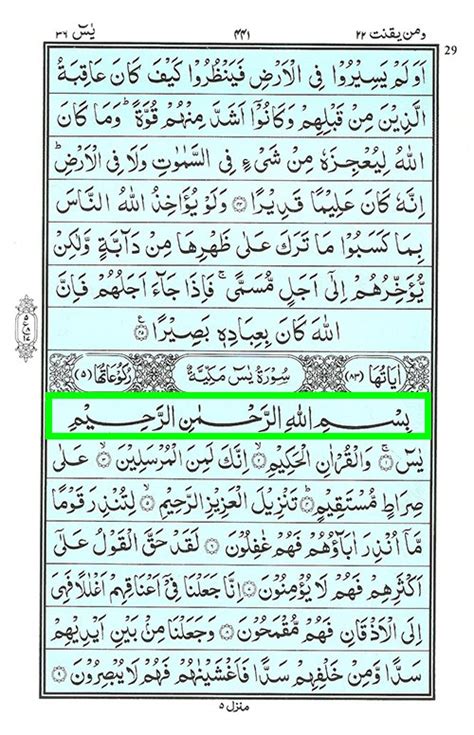 ومن یقنت ۲۲ ۴۴۱ یٰسٓ ۳۶
29
اَوَلَمْ يَسِيْرُوْا فِى الْاَرْضِ فَيَنْظُرُوْا كَيْفَ كَانَ عَاقِبَةُ
الَّذِيْنَ مِنْ قَبْلِهِمْ وَكَانُوْٓا اَشَدَّ مِنْهُمْ قُوَّةً ؕ وَمَا كَانَ
اللّٰهُ لِيُعْجِزَهٗ مِنْ شَىْءٍ فِى السَّمٰوٰتِ وَلَا فِى الْاَرْضِ ؕ
اِنَّهٗ كَانَ عَلِيْمًا قَدِيْرًا ﴿۴۴﴾ وَلَوْ يُؤَاخِذُ اللّٰهُ النَّاسَ
بِمَا كَسَبُوْا مَا تَرَكَ عَلٰى ظَهْرِهَا مِنْ دَآبَّةٍ وَّلٰكِنْ
يُّؤَخِّرُهُمْ اِلٰٓى اَجَلٍ مُّسَمًّى ۚ فَاِذَا جَآءَ اَجَلُهُمْ فَاِنَّ
اللّٰهَ كَانَ بِعِبَادِهٖ بَصِيْرًا ﴿۴۵﴾
اٰيَاتُهَا (۸۳) سُوْرَةُ يٰسٓ مَكِّيَّةٌ رُكُوْعَاتُهَا (۵)
بِسْمِ اللّٰهِ الرَّحْمٰنِ الرَّحِيْمِ
يٰسٓ ﴿۱﴾ وَالْقُرْاٰنِ الْحَكِيْمِ ﴿۲﴾ اِنَّكَ لَمِنَ الْمُرْسَلِيْنَ ﴿۳﴾ عَلٰى
صِرَاطٍ مُّسْتَقِيْمٍ ﴿۴﴾ تَنْزِيْلَ الْعَزِيْزِ الرَّحِيْمِ ﴿۵﴾ لِتُنْذِرَ قَوْمًا
مَّآ اُنْذِرَ اٰبَآؤُهُمْ فَهُمْ غٰفِلُوْنَ ﴿۶﴾ لَقَدْ حَقَّ الْقَوْلُ عَلٰٓى
اَكْثَرِهِمْ فَهُمْ لَا يُؤْمِنُوْنَ ﴿۷﴾ اِنَّا جَعَلْنَا فِىْٓ اَعْنَاقِهِمْ اَغْلٰلًا فَهِىَ
اِلَى الْاَذْقَانِ فَهُمْ مُّقْمَحُوْنَ ﴿۸﴾ وَجَعَلْنَا مِنْۢ بَيْنِ اَيْدِيْهِمْ
سَدًّا وَّمِنْ خَلْفِهِمْ سَدًّا فَاَغْشَيْنٰهُمْ فَهُمْ لَا يُبْصِرُوْنَ ﴿۹﴾
منزل ۵